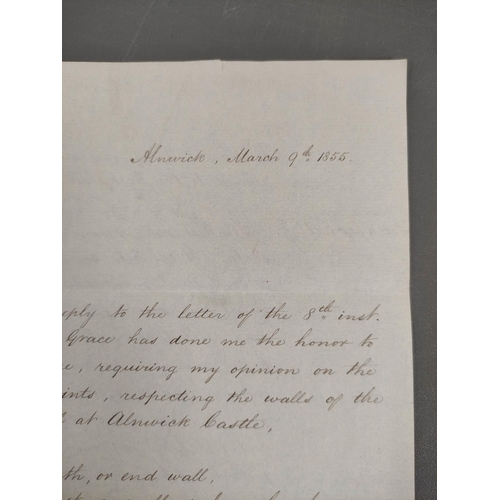 Alnwick, March 9th 1855.
eply to the letter of the 8th inst.
Grace has done me the honor to
e, requiring my opinion on the
ints, respecting the walls of the
at Alnwick Castle,
th, or end wall,